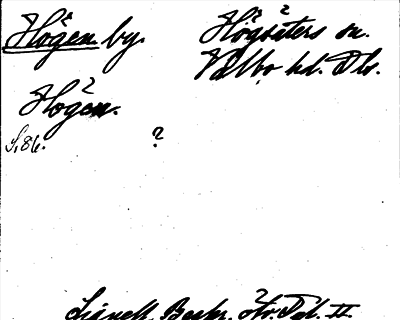 Högen by.
Högsäters sn.
Valbo hd. Dls.
Högen.
S. 86.
?
Lignell, Beskr. Dal. II